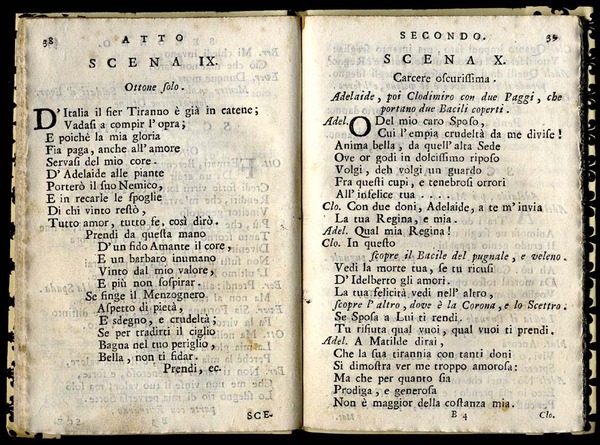 38 ATTO
SCENA IX.
Ottone ſolo.
D'Italia il fier Tiranno è già in catene;
Vadaſi a compir l'opra;
E poichè la mia gloria
Fia paga, anche all'amore
Servaſi del mio core.
D'Adelaide alle piante
Porterò il ſuo Nemico,
E in recarle le ſpoglie
Di chi vinto reſtò,
Tutto amor, tutto fe, così dirò.
Prendi da queſta mano
D'un fido Amante il core,
E un barbaro inumano
Vinto dal mio valore,
E più non ſoſpirar.
Se finge il Menzognero
Aſpetto di pietà,
E' ſdegno, e crudeltà;
Se per tradirti il ciglio
Bagna nel tuo periglio,
Bella, non ti fidar.
Prendi, ec.
SCE-
SECONDO. 39
SCENA X.
Carcere oſcuriſſima.
Adelaide, poi Clodimiro con due Paggi, che
portano due Bacili coperti.
Adel. O Del mio caro Spoſo,
Cui l'empia crudeltà da me diviſe!
Anima bella, da quell'alta Sede
Ove or godi in dolciſſimo ripoſo
Volgi, deh volgi un guardo
Fra queſti cupi, e tenebroſi orrori
All'infelice tua ....
Clo. Con due doni, Adelaide, a te m'invia
La tua Regina, e mia.
Adel. Qual mia Regina!
Clo. In queſto
ſcopre il Bacile del pugnale, e veleno.
Vedi la morte tua, ſe tu ricuſi
D'Idelberto gli amori.
La tua felicità vedi nell'altro,
ſcopre l'altro, dove è la Corona, e lo Scettro.
Se Spoſa a Lui ti rendi.
Tu rifiuta qual vuoi, qual vuoi ti prendi.
Adel. A Matilde dirai,
Che la ſua tirannia con tanti doni
Si dimoſtra ver me troppo amoroſa:
Ma che per quanto ſia
Prodiga, e generoſa
Non è maggior della coſtanza mia.
B 4 Clo.